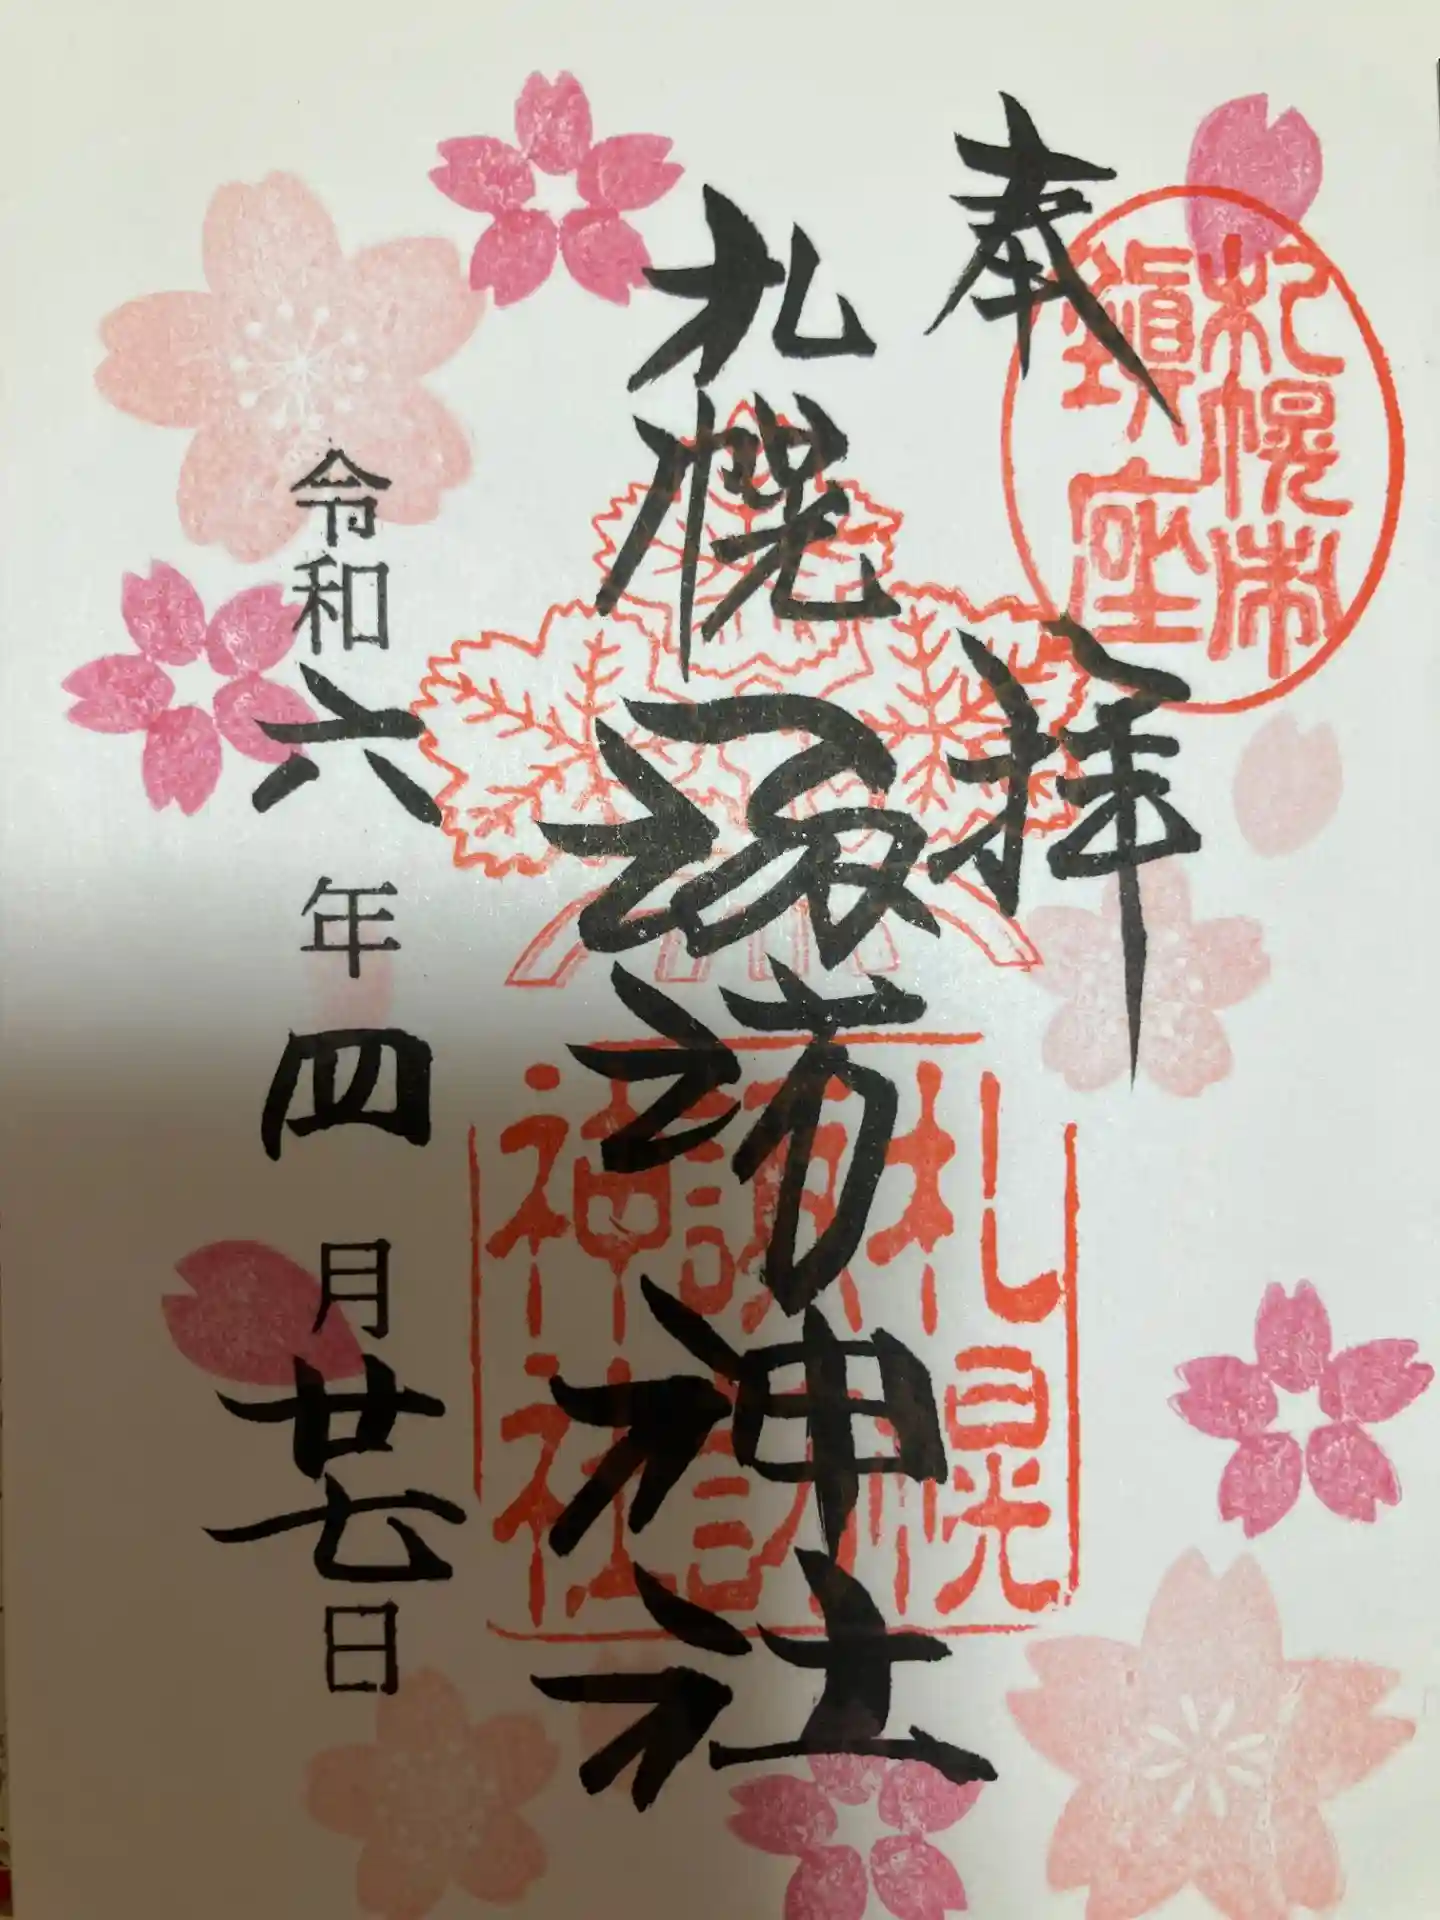 奉拝
札幌市
鎮座
札幌諏訪神社
札幌
諏訪
神社
令和六年四月廿七日